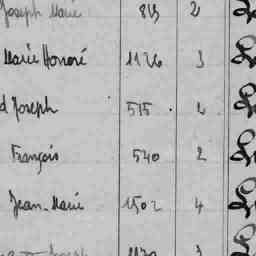 Joseph Marie 813 2
Marie Honoré 1126 3
d Joseph 515 2
François 540 2
Jean-Marie 1502 4
Joseph 3